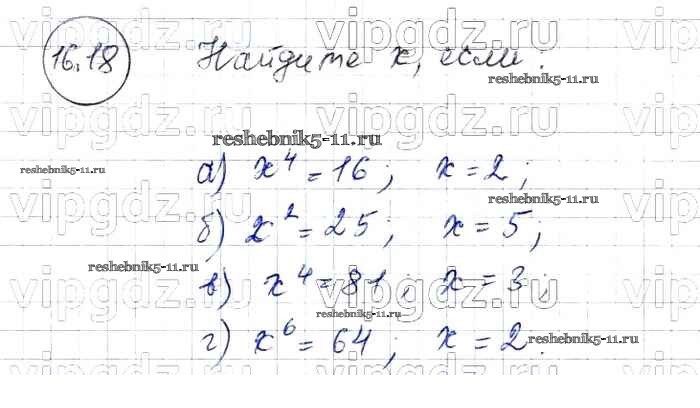 vipgdz.ru vipgdz.ru
16.18 Найдите x, если:
reshebnik5-11.ru
vipgdz.ru vipgdz.ru
reshebnik5-11.ru
reshebnik5-11.ru
а) x⁴ = 16; x = 2;
vipgdz.ru vipgdz.ru
reshebnik5-11.ru
б) x² = 25; x = 5;
reshebnik5-11.ru
в) x⁴ = 81; x = 3;
vipgdz.ru vipgdz.ru
reshebnik5-11.ru
г) x⁶ = 64; x = 2.
reshebnik5-11.ru